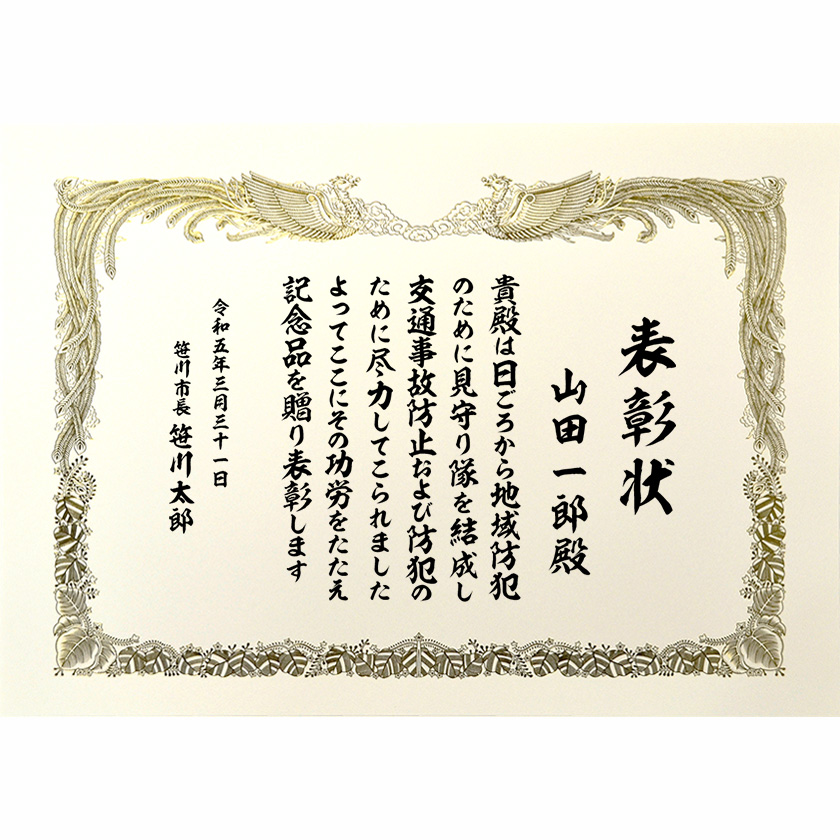 表彰状
山田一郎殿
貴殿は日ごろから地域防犯
のために見守り隊を結成し
交通事故防止および防犯の
ために尽力してこられました
よってここにその功労をたたえ
記念品を贈り表彰します
令和五年三月三十一日
笹川市長 笹川太郎